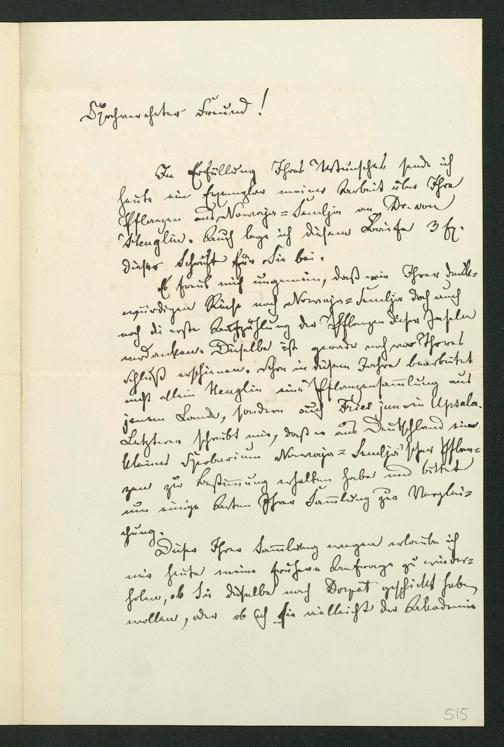 Hochverehrter Freund!
In Erfüllung Ihres Wunsches sende ich
heute ein Exemplar meiner Arbeit über Ihre
Pflanzen aus Nowaja=Semlja an Dr. von
Heuglin. Auch lege ich diesem Briefe 3 Ex.
dieser Schrift für Sie bei.
Es freut mich ungemein, daß wir Ihrer denk-
würdigen Reise nach Nowaja=Semlja doch auch
noch die erste Aufzählung der Pflanzen dieser Inseln
verdanken. Dieselbe ist gerade noch vor Thores
Schluß erschienen. Denn in diesem Jahre bearbeitet
nicht allein Heuglin eine Pflanzensammlung aus
jenem Lande, sondern auch Fries jun. in Upsala.
Letzterer schreibt mir, daß er aus Deutschland eine
kleines Herbarium Nowaja=Semlja'scher Pflan-
zen zur Bestimmung erhalten habe und bittet
um einige Arten Ihrer Sammlung zur Verglei-
chung.
Dieser Ihrer Sammlung wegen erlaube ich
mir heute meine frühere Anfrage zu wieder-
holen, ob Sie dieselbe nach Dorpat geschickt haben
wollen, oder ob ich sie vielleicht der Akademie
515